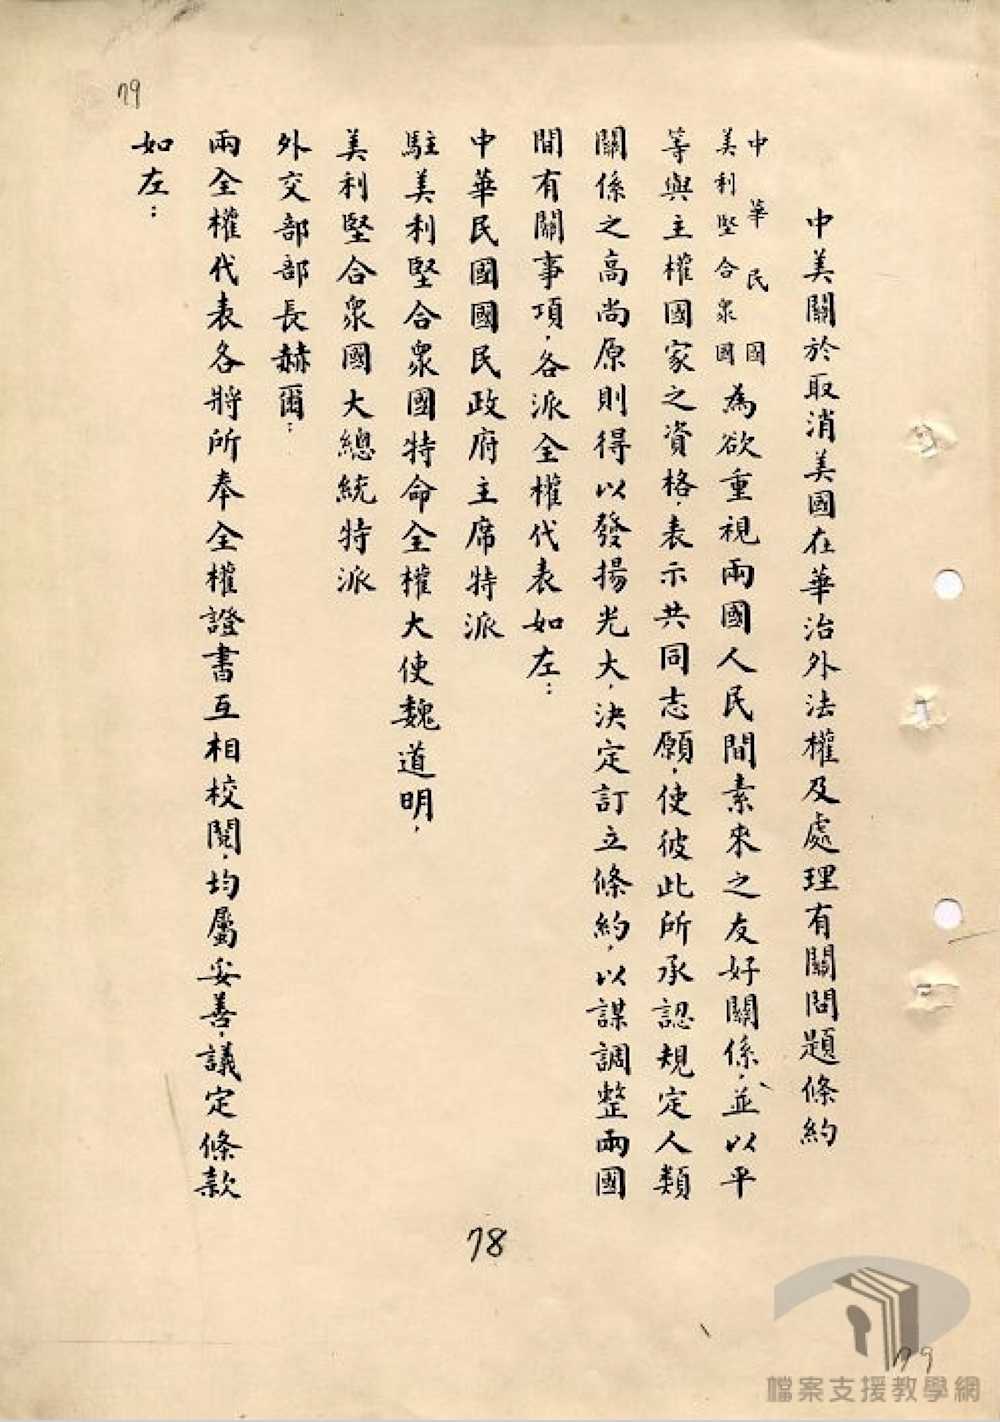 79
中美關於取消美國在華治外法權及處理有關問題條約
中華民國
美利堅合眾國
為欲重視兩國人民間素來之友好關係，並以平
等與主權國家之資格，表示共同志願，使彼此所承認規定人類
關係之高尚原則得以發揚光大，決定訂立條約，以謀調整兩國
間有關事項，各派全權代表如左：
中華民國國民政府主席特派
駐美利堅合眾國特命全權大使魏道明，
美利堅合眾國大總統特派
外交部部長赫爾：
兩全權代表各將所奉全權證書互相校閱，均屬妥善，議定條款
如左：
78
79
檔案支援教學網